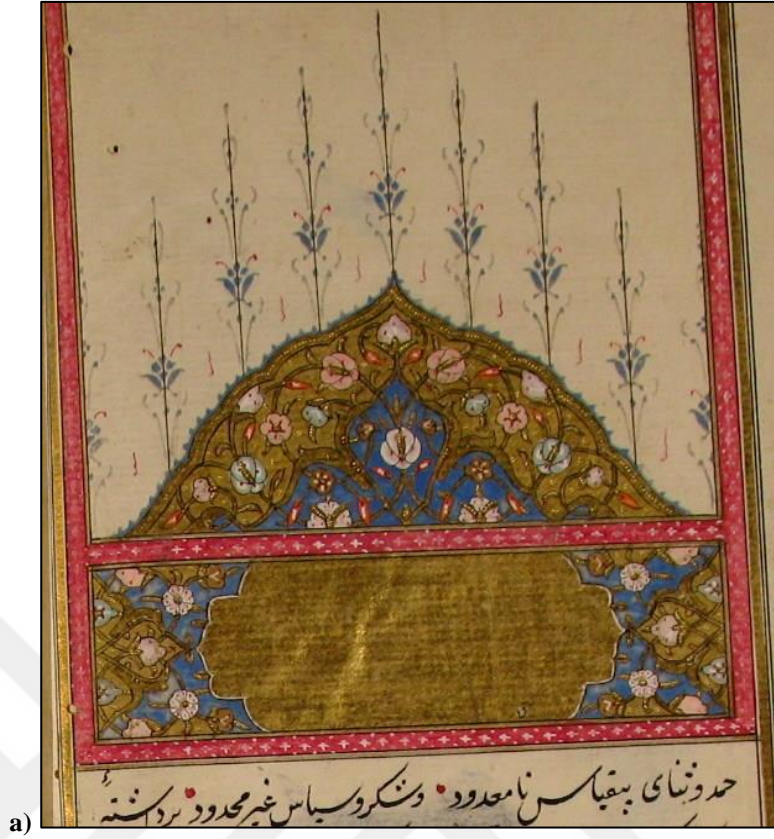 حمد و ثنای بیقیاس نامعدود و شکر و سپاس غیر محدود
a)